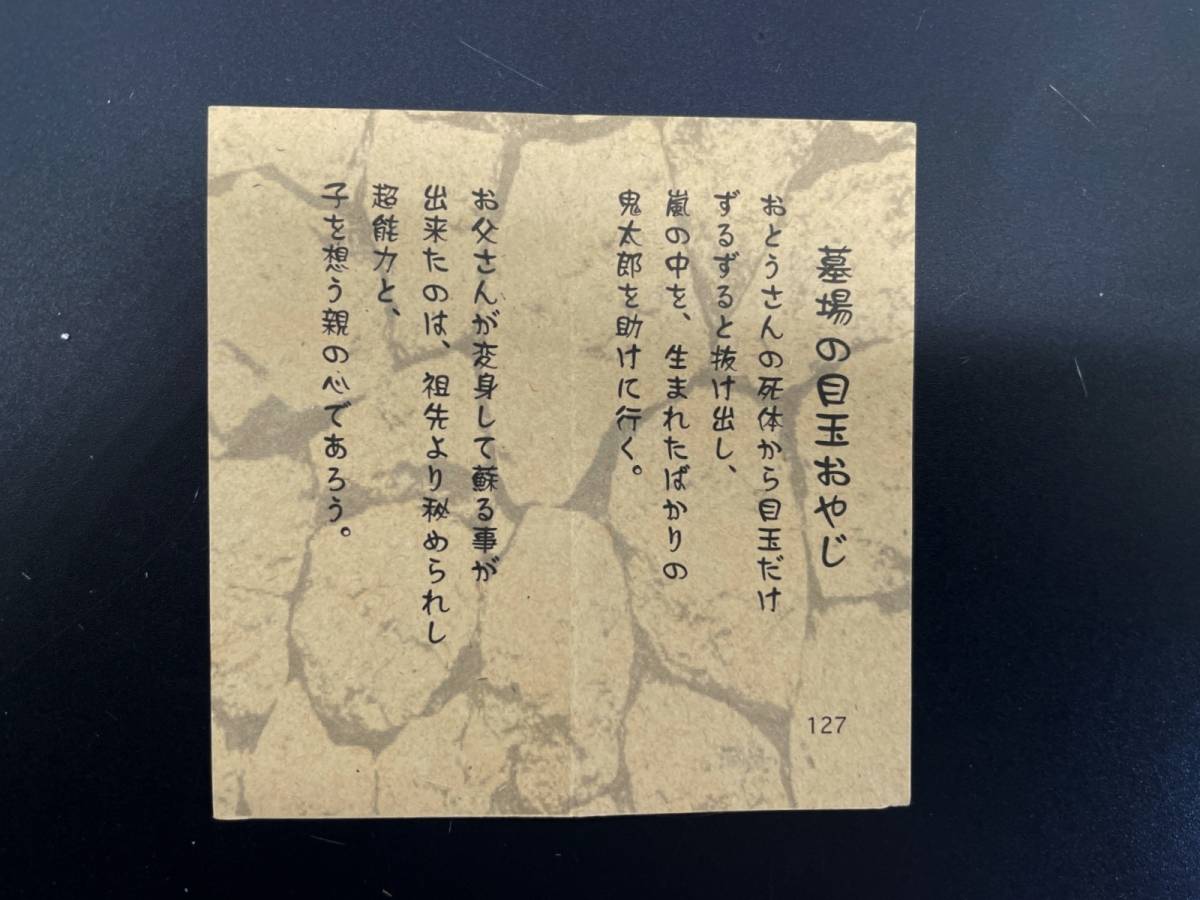 墓場の目玉おやじ
おとうさんの死体から目玉だけ
ずるずると抜け出し、
嵐の中を、生まれたばかりの
鬼太郎を助けに行く。
お父さんが変身して蘇る事が
出来たのは、祖先より秘められし
超能力と、
子を想う親の心であろう。
127